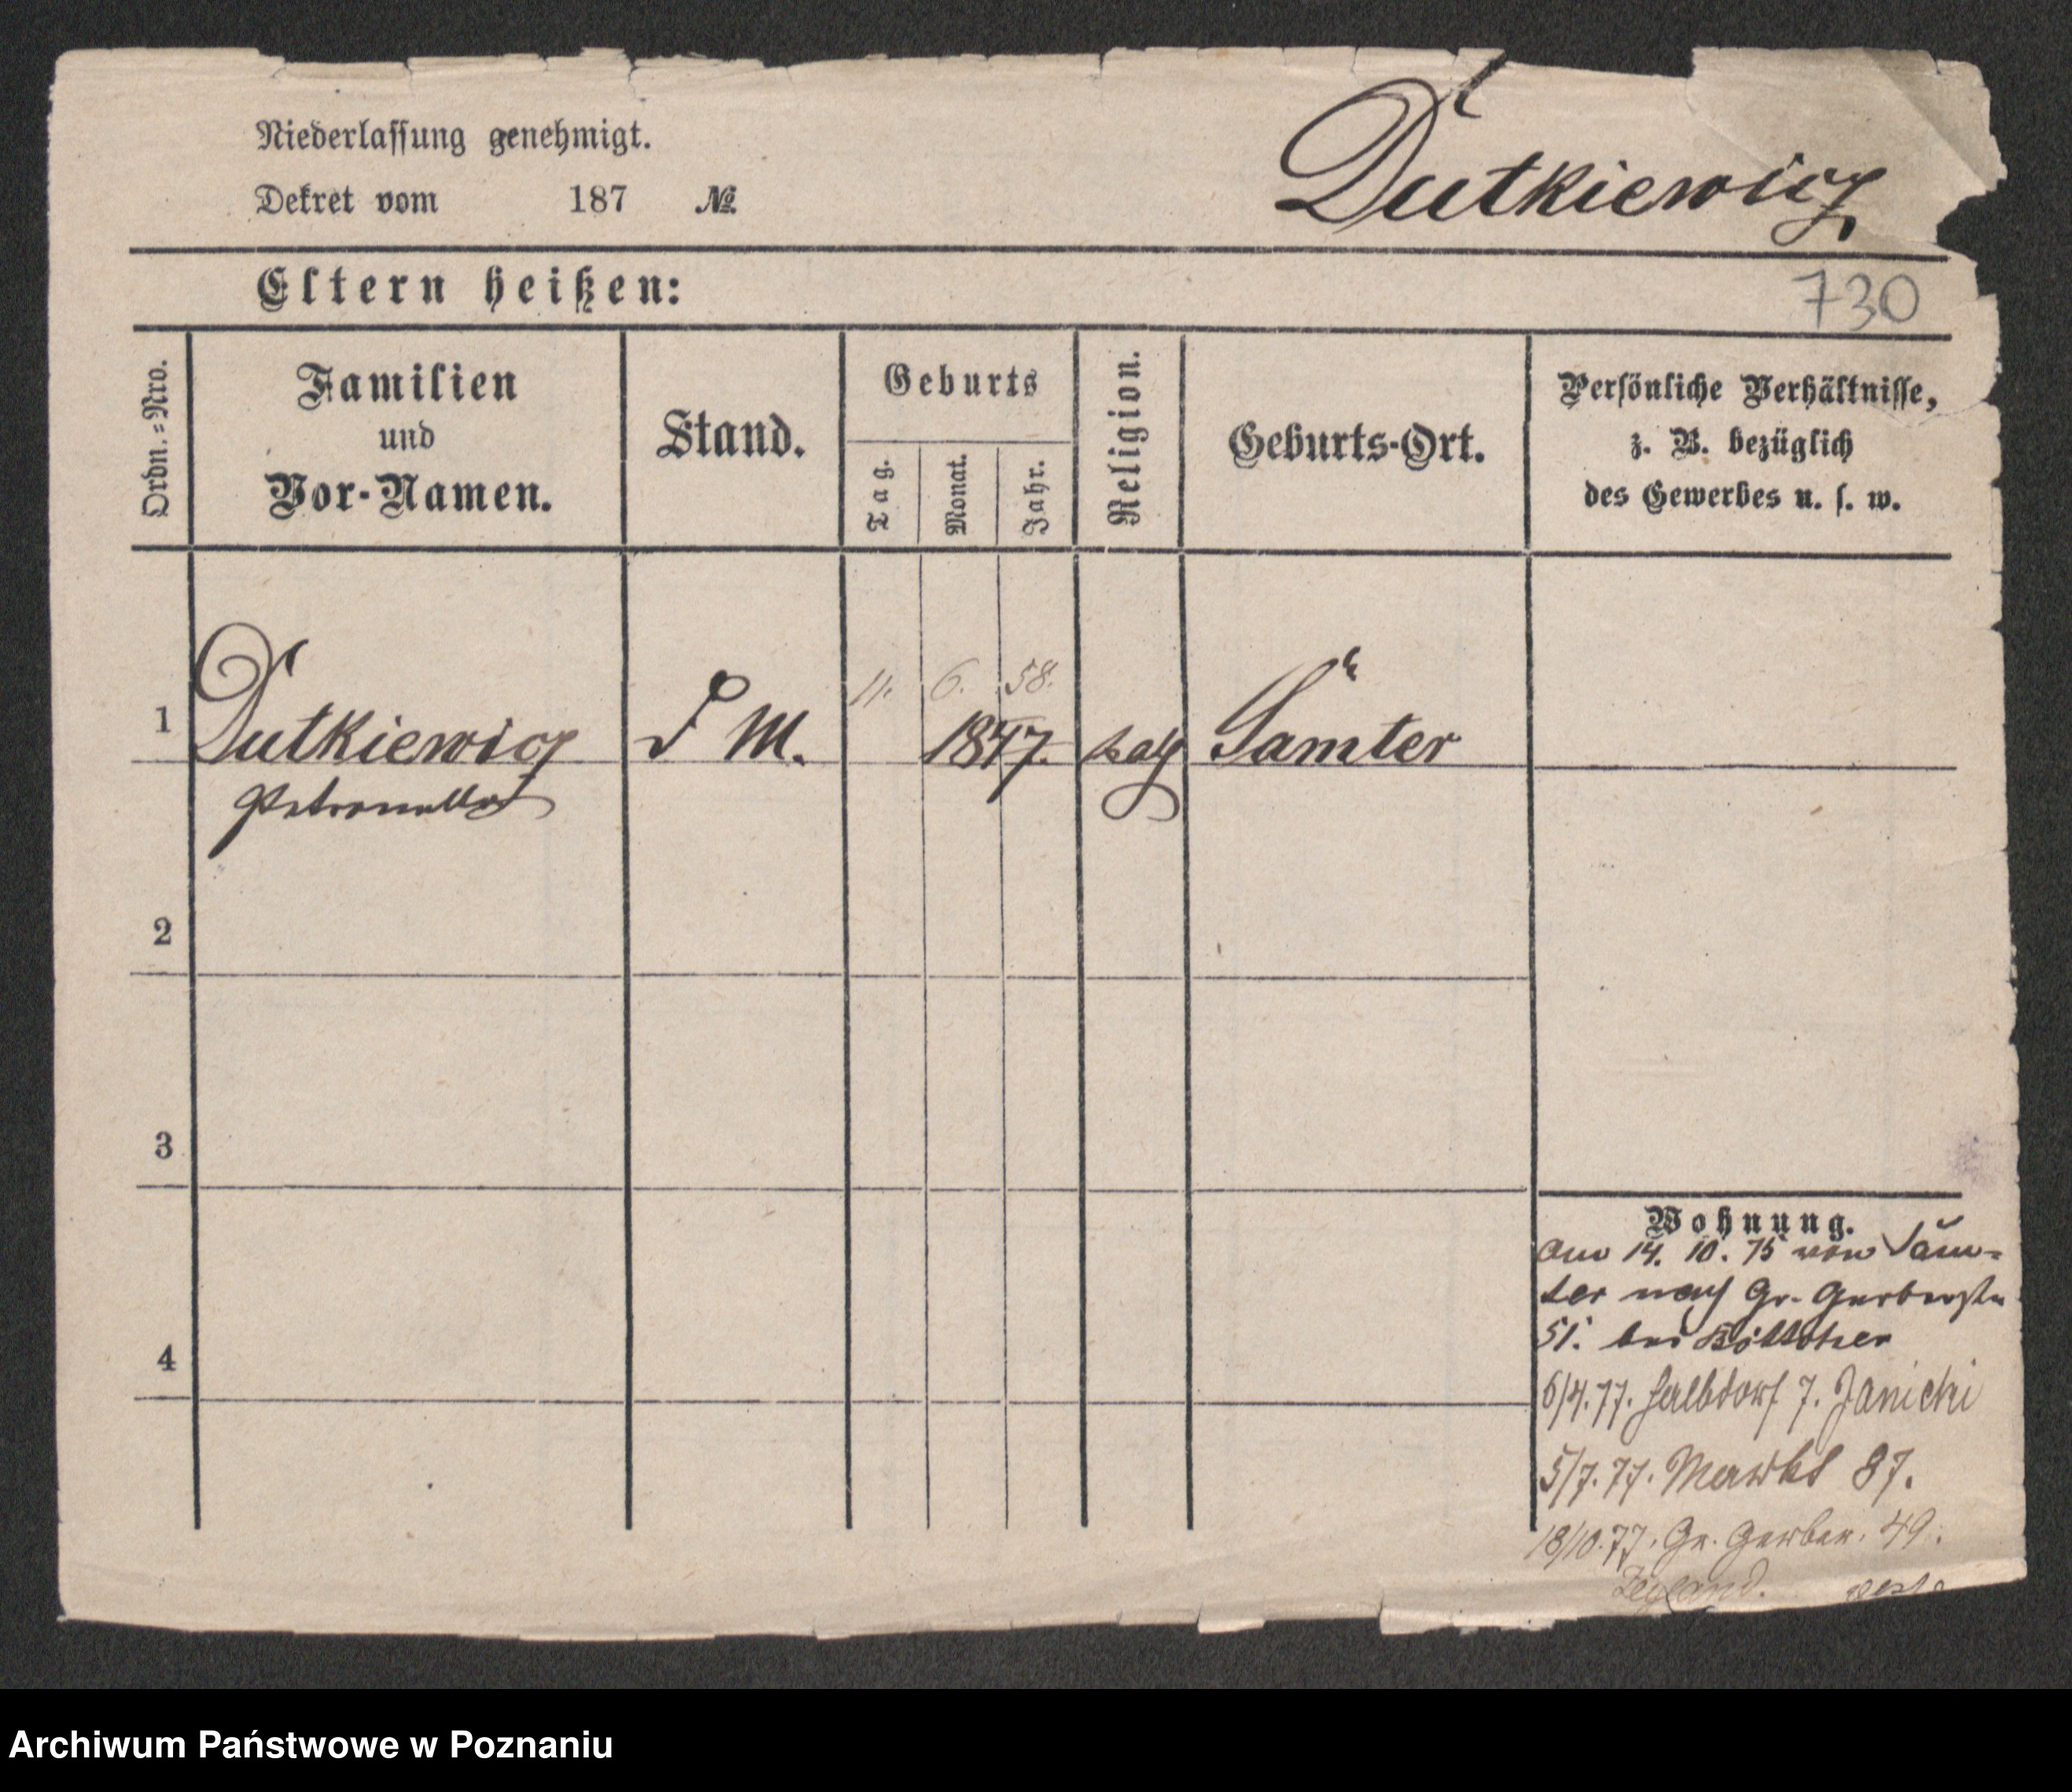 Niederlassung genehmigt.
Dekret vom 187 №
Dutkiewicz
Eltern heißen:
730
Ordn.=Nro.
Familien
und
Vor-Namen.
Stand.
Geburts
Tag.
Monat.
Jahr.
Religion.
Geburts-Ort.
Persönliche Verhältnisse,
z. B. bezüglich
des Gewerbes u. s. w.
11. 6. 58.
1 Dutkiewicz D M. 1847. kath Samter
Petronella
2
3
4
Wohnung.
Am 14. 10. 75 von Sam-
ter nach Gr. Gerberstr
51. bei Böttcher
6/4.77. Halbdorf 7. Janicki
5/7.77. Markt 87.
18/10.77. Gr. Gerber. 49.
Zeyland.
Archiwum Państwowe w Poznaniu